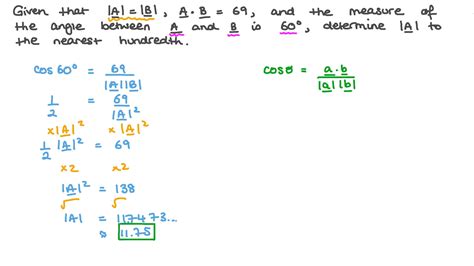 Given that |A| = |B|, A · B = 69, and the measure of
the angle between A and B is 60°, determine |A| to
the nearest hundredth.
cos 60° = 69 / |A||B|
1/2 = 69 / |A|²
×|A|² ×|A|²
1/2 |A|² = 69
×2 ×2
|A|² = 138
√ √
|A| = 11.7473...
≈ 11.75
cosθ = a · b / |a||b|